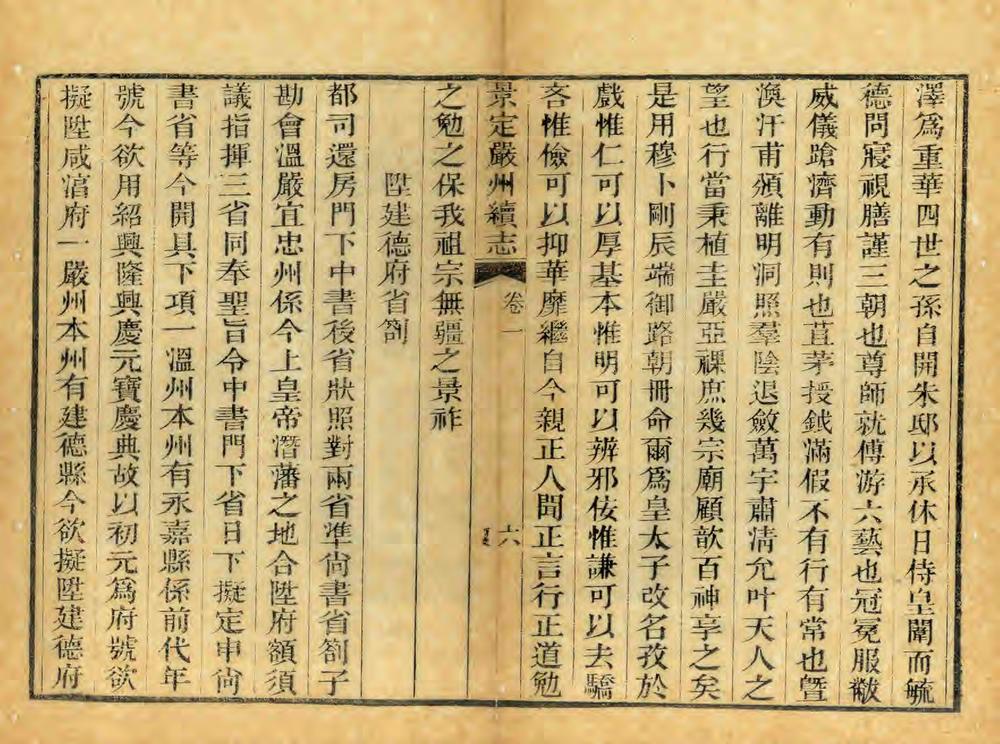 澤為重華四世之孫自開朱邸以承休日侍皇闈而毓
德問寢視膳謹三朝也尊師就傅游六藝也冠冕服黻
威儀蹌濟動有則也苴茅授鉞滿假不有行有常也曁
渙汗甫頒離明洞照羣陰退斂萬宇肅淸允叶天人之
望也行當秉植圭嚴亞祼庶幾宗廟顧歆百神享之矣
是用穆卜剛辰端御路朝冊命爾爲皇太子改名孜於
戲惟仁可以厚基本惟明可以辨邪佞惟謙可以去驕
吝惟儉可以抑華靡繼自今親正人聞正言行正道勉
景定嚴州續志 卷一 六
之勉之保我祖宗無疆之景祚
陞建德府省劄
都司還房門下中書後省狀照對兩省準尚書省劄子
勘會溫嚴宜忠州係今上皇帝潛藩之地合陞府額須
議指揮三省同奉聖旨令中書門下省日下擬定申尚
書省等今開具下項一溫州本州有永嘉縣係前代年
號今欲用紹興隆興慶元寶慶典故以初元爲府號欲
擬陞咸淳府一嚴州本州有建德縣今欲擬陞建德府